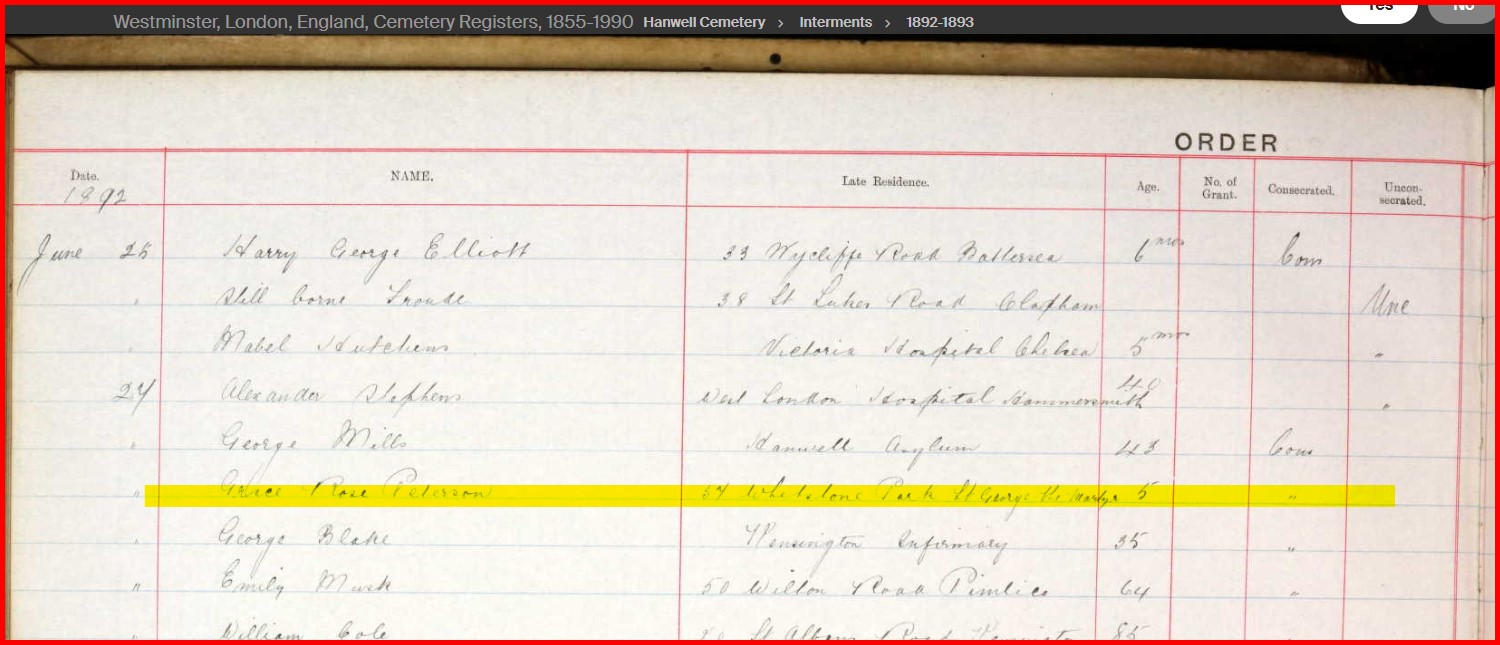 Westminster, London, England, Cemetery Registers, 1855-1990 Hanwell Cemetery > Interments > 1892-1893 Yes No
ORDER
Date. NAME. Late Residence. Age. No. of Grant. Consecrated. Uncon-secrated.
1892
June 25 Harry George Elliott 33 Wycliffe Road Battersea 6 mos Con
" Still borne Froude 38 St Lukes Road Clapham Unc
" Mabel Hutchens Victoria Hospital Chelsea 5 mos "
27 Alexander Stephens West London Hospital Hammersmith 40 "
" George Mills Hanwell Asylum 43 Con
" Grace Rose Peterson 54 Whetstone Park St George the Martyr 5 "
" George Blake Kensington Infirmary 35 "
" Emily Musk 50 Wilton Road Pimlico 64 "
" William Cole St Albans Road 85